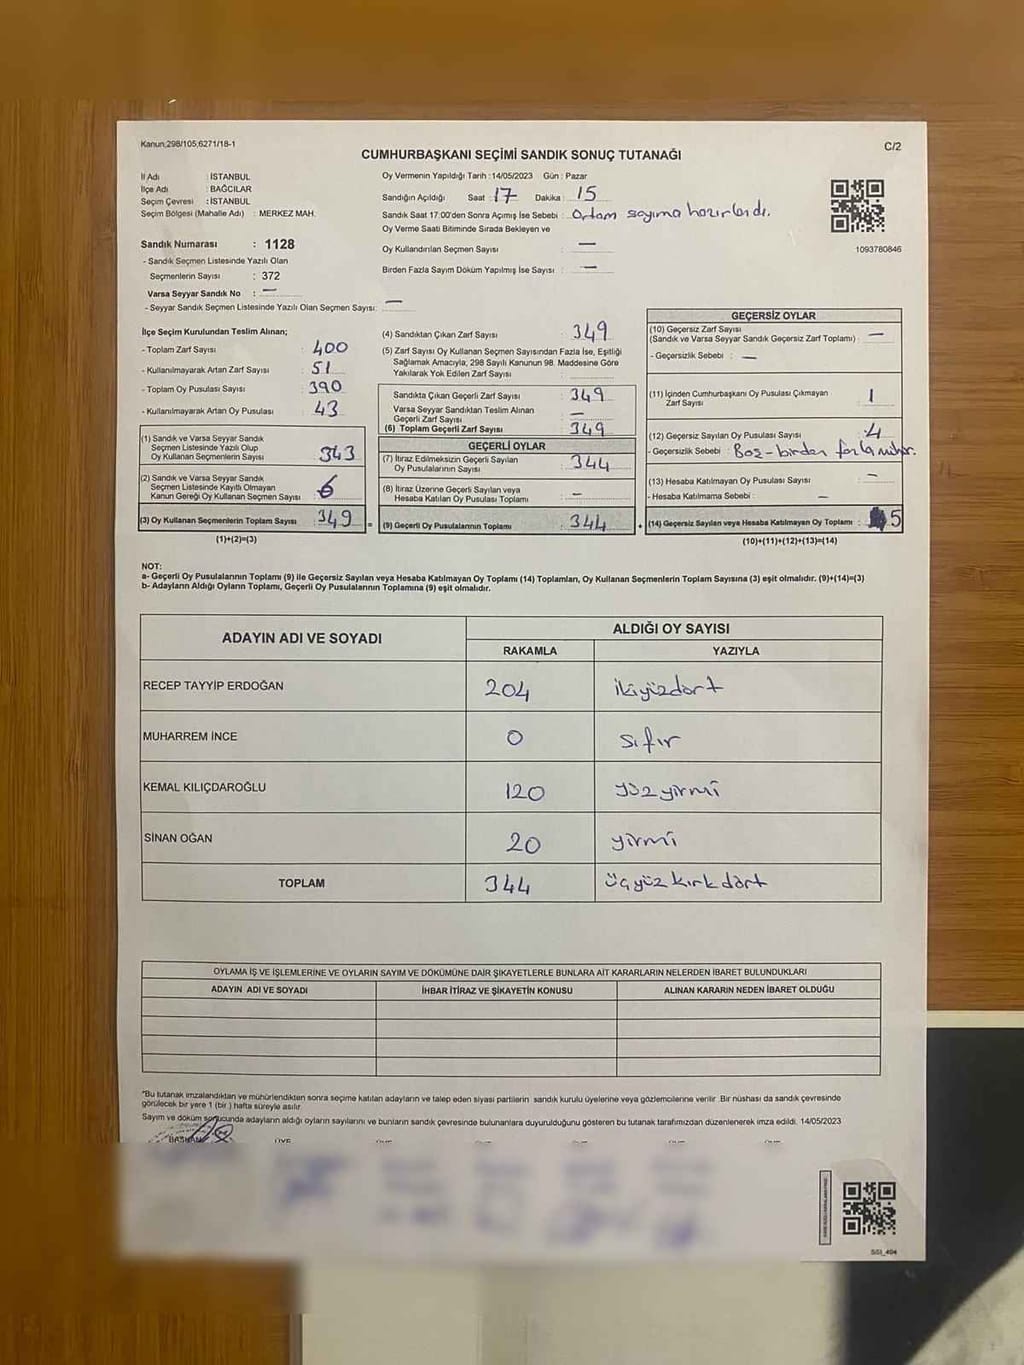 Kanun;298/105;6271/18-1
C/2
CUMHURBAŞKANI SEÇİMİ SANDIK SONUÇ TUTANAĞI
İl Adı : İSTANBUL
İlçe Adı : BAĞCILAR
Seçim Çevresi : İSTANBUL
Seçim Bölgesi (Mahalle Adı) : MERKEZ MAH.
Oy Vermenin Yapıldığı Tarih :14/05/2023 Gün : Pazar
Sandığın Açıldığı Saat : 17 Dakika : 15
Sandık Saat 17:00'den Sonra Açımış İse Sebebi : Ortam sayıma hazırlandı.
Oy Verme Saati Bitiminde Sırada Bekleyen ve
Oy Kullandırılan Seçmen Sayısı : —
Birden Fazla Sayım Döküm Yapılmış İse Sayısı : —
1093780846
Sandık Numarası : 1128
- Sandık Seçmen Listesinde Yazılı Olan
Seçmenlerin Sayısı : 372
Varsa Seyyar Sandık No : —
- Seyyar Sandık Seçmen Listesinde Yazılı Olan Seçmen Sayısı: —
İlçe Seçim Kurulundan Teslim Alınan;
- Toplam Zarf Sayısı : 400
- Kullanılmayarak Artan Zarf Sayısı : 51
- Toplam Oy Pusulası Sayısı : 390
- Kullanılmayarak Artan Oy Pusulası : 43
(1) Sandık ve Varsa Seyyar Sandık
Seçmen Listesinde Yazılı Olup
Oy Kullanan Seçmenlerin Sayısı : 343
(2) Sandık ve Varsa Seyyar Sandık
Seçmen Listesinde Kayıtlı Olmayan
Kanun Gereği Oy Kullanan Seçmen Sayısı : 6
(3) Oy Kullanan Seçmenlerin Toplam Sayısı : 349 =
(1)+(2)=(3)
(4) Sandıktan Çıkan Zarf Sayısı : 349
(5) Zarf Sayısı Oy Kullanan Seçmen Sayısından Fazla İse, Eşitliği
Sağlamak Amacıyla, 298 Sayılı Kanunun 98. Maddesine Göre
Yakılarak Yok Edilen Zarf Sayısı :
Sandıkta Çıkan Geçerli Zarf Sayısı : 349
Varsa Seyyar Sandıktan Teslim Alınan
Geçerli Zarf Sayısı : —
(6) Toplam Geçerli Zarf Sayısı : 349
GEÇERLİ OYLAR
(7) İtiraz Edilmeksizin Geçerli Sayılan
Oy Pusulalarının Sayısı : 344
(8) İtiraz Üzerine Geçerli Sayılan veya
Hesaba Katılan Oy Pusulası Toplamı : —
(9) Geçerli Oy Pusulalarının Toplamı : 344 +
GEÇERSİZ OYLAR
(10) Geçersiz Zarf Sayısı
(Sandık ve Varsa Seyyar Sandık Geçersiz Zarf Toplamı) : —
- Geçersizlik Sebebi : —
(11) İçinden Cumhurbaşkanı Oy Pusulası Çıkmayan
Zarf Sayısı : 1
(12) Geçersiz Sayılan Oy Pusulası Sayısı : 4
- Geçersizlik Sebebi : Boş-birden fazla mühür.
(13) Hesaba Katılmayan Oy Pusulası Sayısı : —
- Hesaba Katılmama Sebebi : —
(14) Geçersiz Sayılan veya Hesaba Katılmayan Oy Toplamı : 5
(10)+(11)+(12)+(13)=(14)
NOT:
a- Geçerli Oy Pusulalarının Toplamı (9) ile Geçersiz Sayılan veya Hesaba Katılmayan Oy Toplamı (14) Toplamları, Oy Kullanan Seçmenlerin Toplam Sayısına (3) eşit olmalıdır. (9)+(14)=(3)
b- Adayların Aldığı Oyların Toplamı, Geçerli Oy Pusulalarının Toplamına (9) eşit olmalıdır.
ADAYIN ADI VE SOYADI
ALDIĞI OY SAYISI
RAKAMLA YAZIYLA
RECEP TAYYİP ERDOĞAN 204 ikiyüzdört
MUHARREM İNCE 0 sıfır
KEMAL KILIÇDAROĞLU 120 yüzyirmi
SİNAN OĞAN 20 yirmi
TOPLAM 344 üçyüz kırk dört
OYLAMA İŞ VE İŞLEMLERİNE VE OYLARIN SAYIM VE DÖKÜMÜNE DAİR ŞİKAYETLERLE BUNLARA AİT KARARLARIN NELERDEN İBARET BULUNDUKLARI
ADAYIN ADI VE SOYADI İHBAR İTİRAZ VE ŞİKAYETİN KONUSU ALINAN KARARIN NEDEN İBARET OLDUĞU
*Bu tutanak imzalandıktan ve mühürlendikten sonra seçime katılan adayların ve talep eden siyasi partilerin sandık kurulu üyelerine veya gözlemcilerine verilir. Bir nüshası da sandık çevresinde
görülecek bir yere 1 (bir) hafta süreyle asılır.
Sayım ve döküm sonucunda adayların aldığı oyların sayılarını ve bunların sandık çevresinde bulunanlara duyurulduğunu gösteren bu tutanak tarafımızdan düzenlenerek imza edildi. 14/05/2023
BAŞKAN